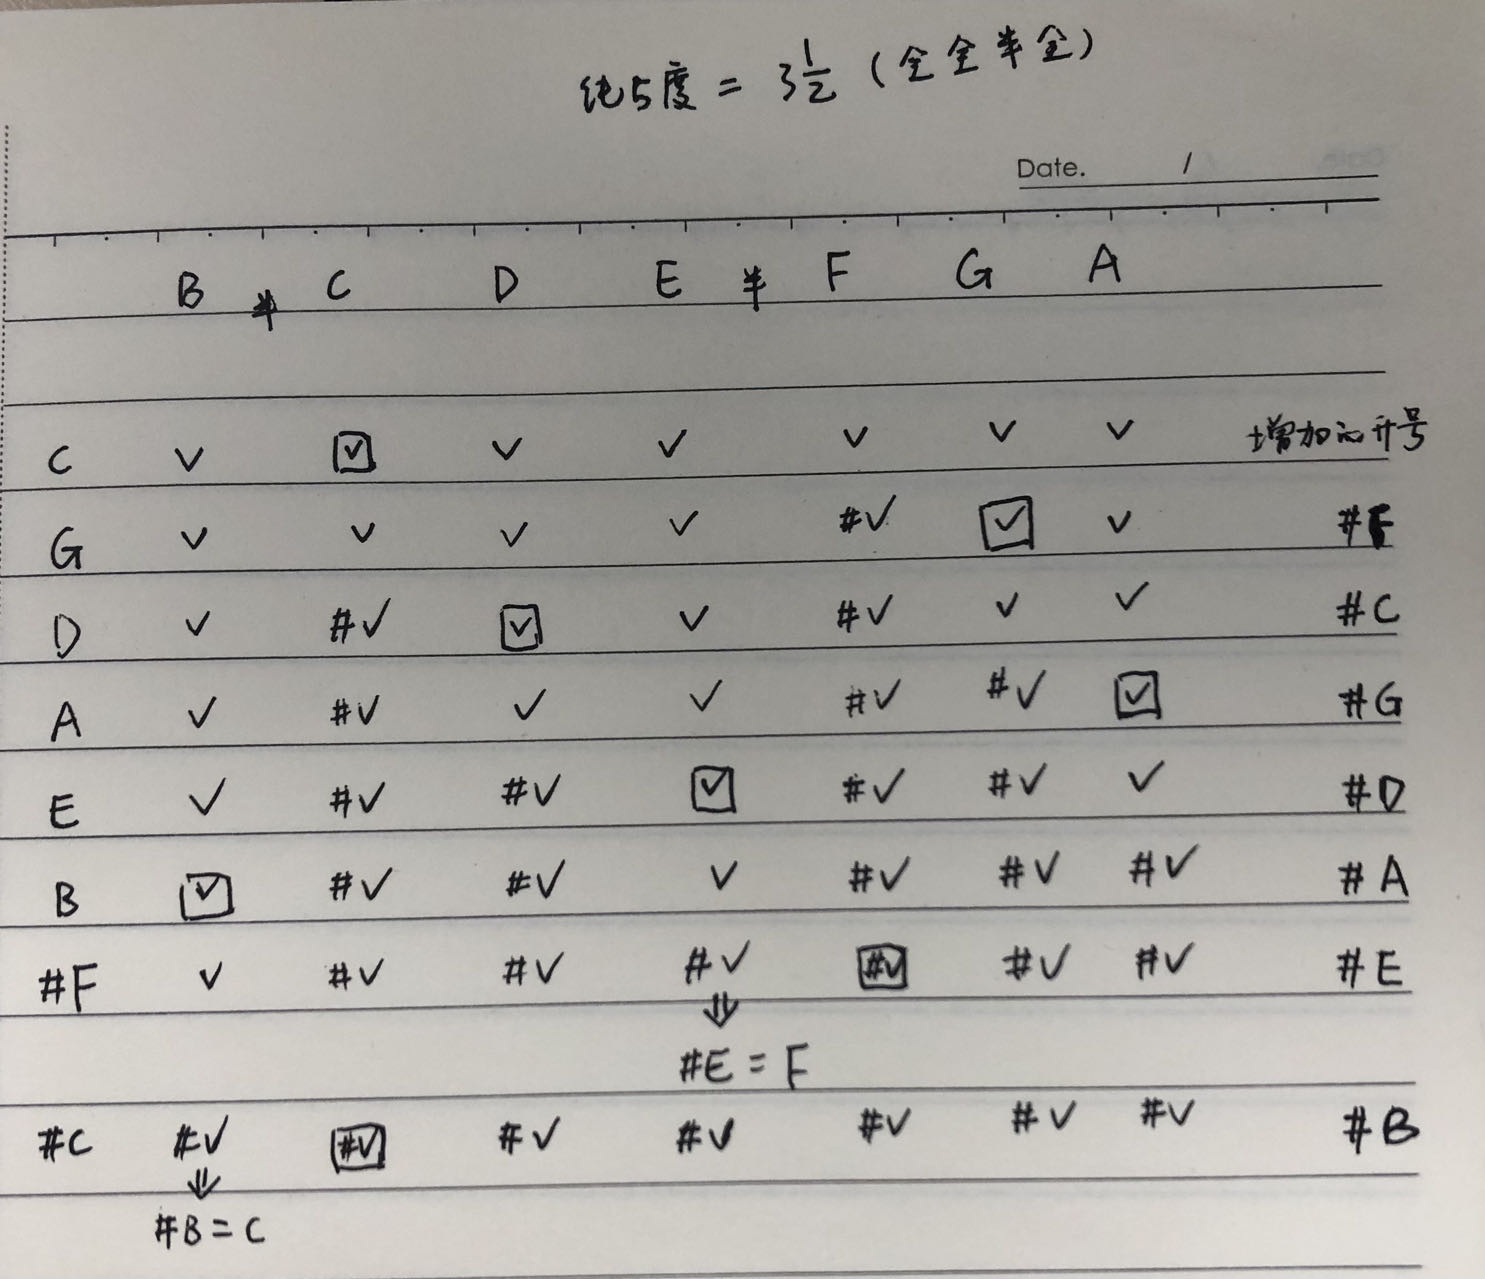 纯5度 = 3 1/2 (全全半全)
Date. /
B 半 C D E 半 F G A
C ✓ ☑ ✓ ✓ ✓ ✓ ✓ 增加的升号
G ✓ ✓ ✓ ✓ #✓ ☑ ✓ #F
D ✓ #✓ ☑ ✓ #✓ ✓ ✓ #C
A ✓ #✓ ✓ ✓ #✓ #✓ ☑ #G
E ✓ #✓ #✓ ☑ #✓ #✓ ✓ #D
B ☑ #✓ #✓ ✓ #✓ #✓ #✓ #A
#F ✓ #✓ #✓ #✓ #✓ #✓ #✓ #E
⇓
#E = F
#C #✓ #✓ #✓ #✓ #✓ #✓ #✓ #B
⇓
#B = C